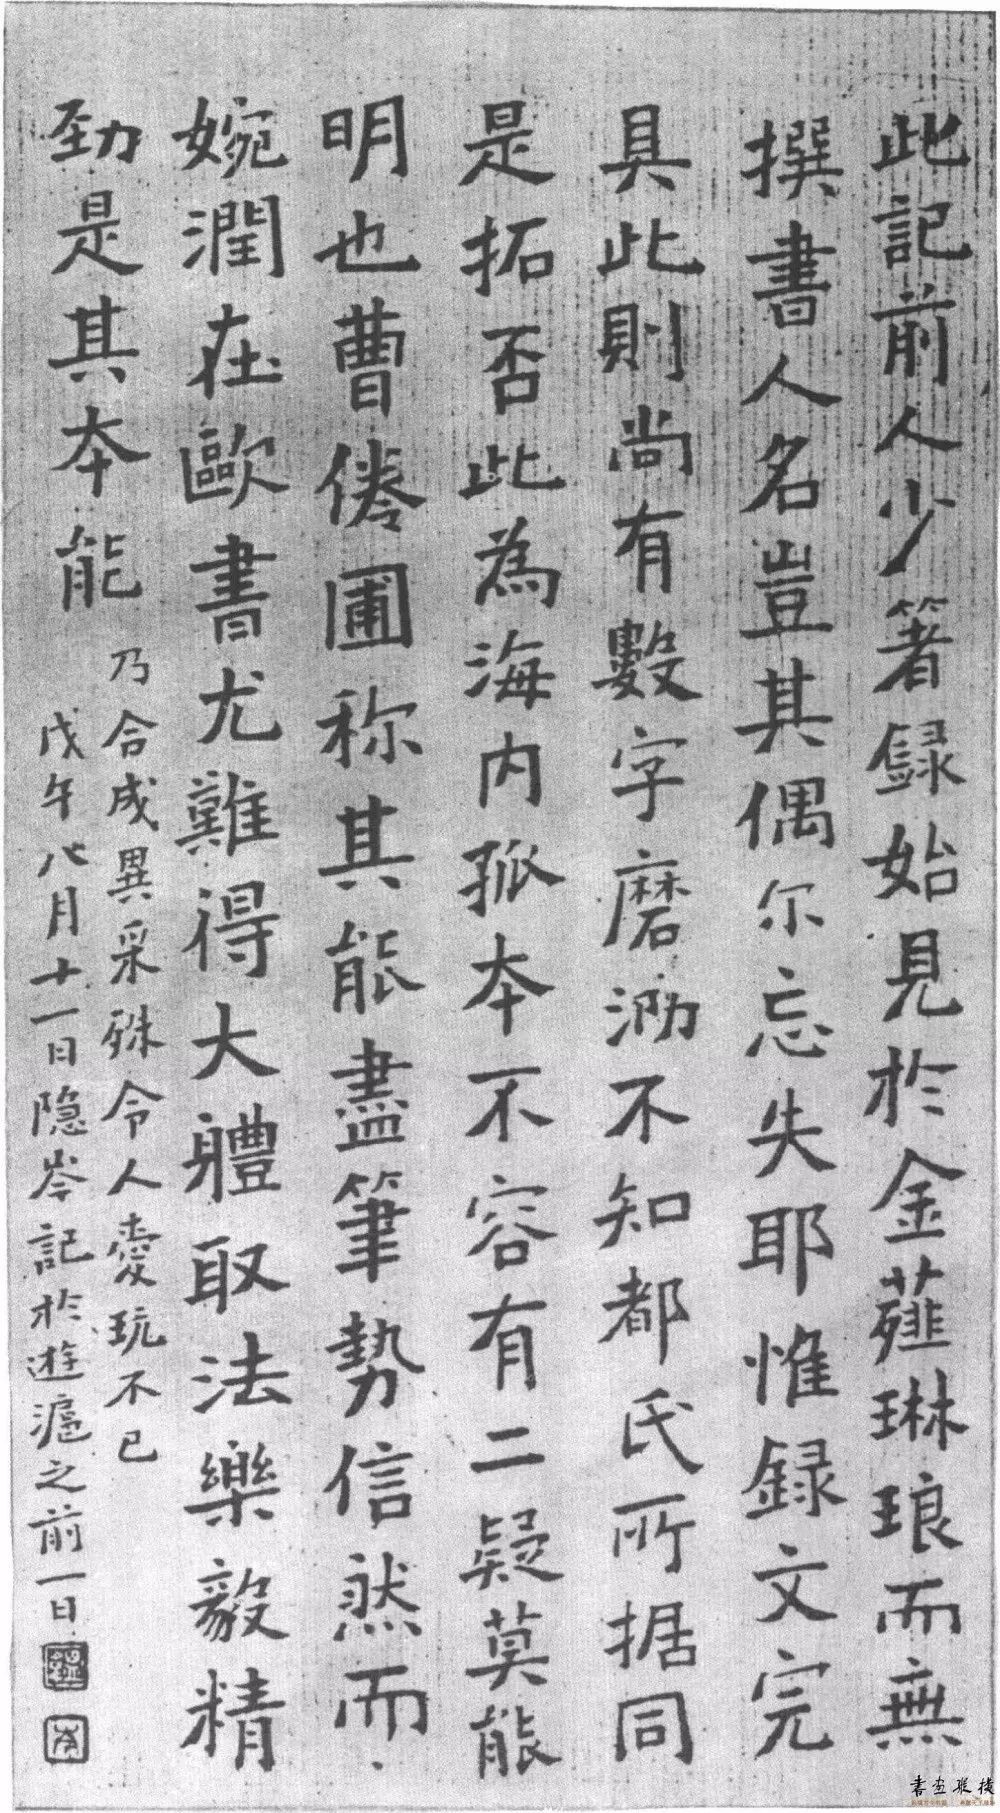 此記前人少箸録始見於金薤琳琅而無
撰書人名豈其偶尔忘失耶惟録文完
具此則尚有數字磨泐不知都氏所据同
是拓否此為海内孤本不容有二疑莫能
明也曹倦圃称其能盡筆勢信然而
婉潤在歐書尤難得大體取法樂毅精
劲是其本能
乃合成異采殊令人愛玩不已
戊午八月十一日隐岑記於遊滬之前一日